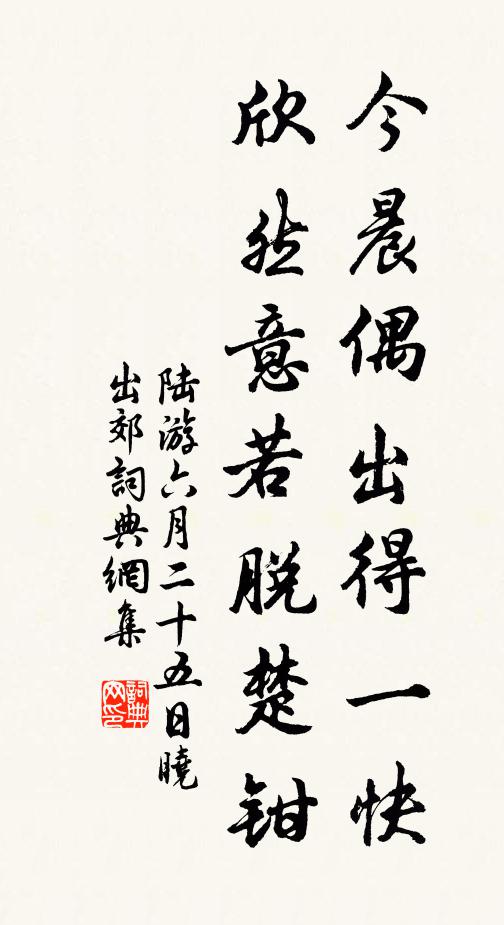 今晨偶出得一快
欣然意若脱楚鉗
陆游六月二十五日曉
出郊詞典網集
詞典
网印